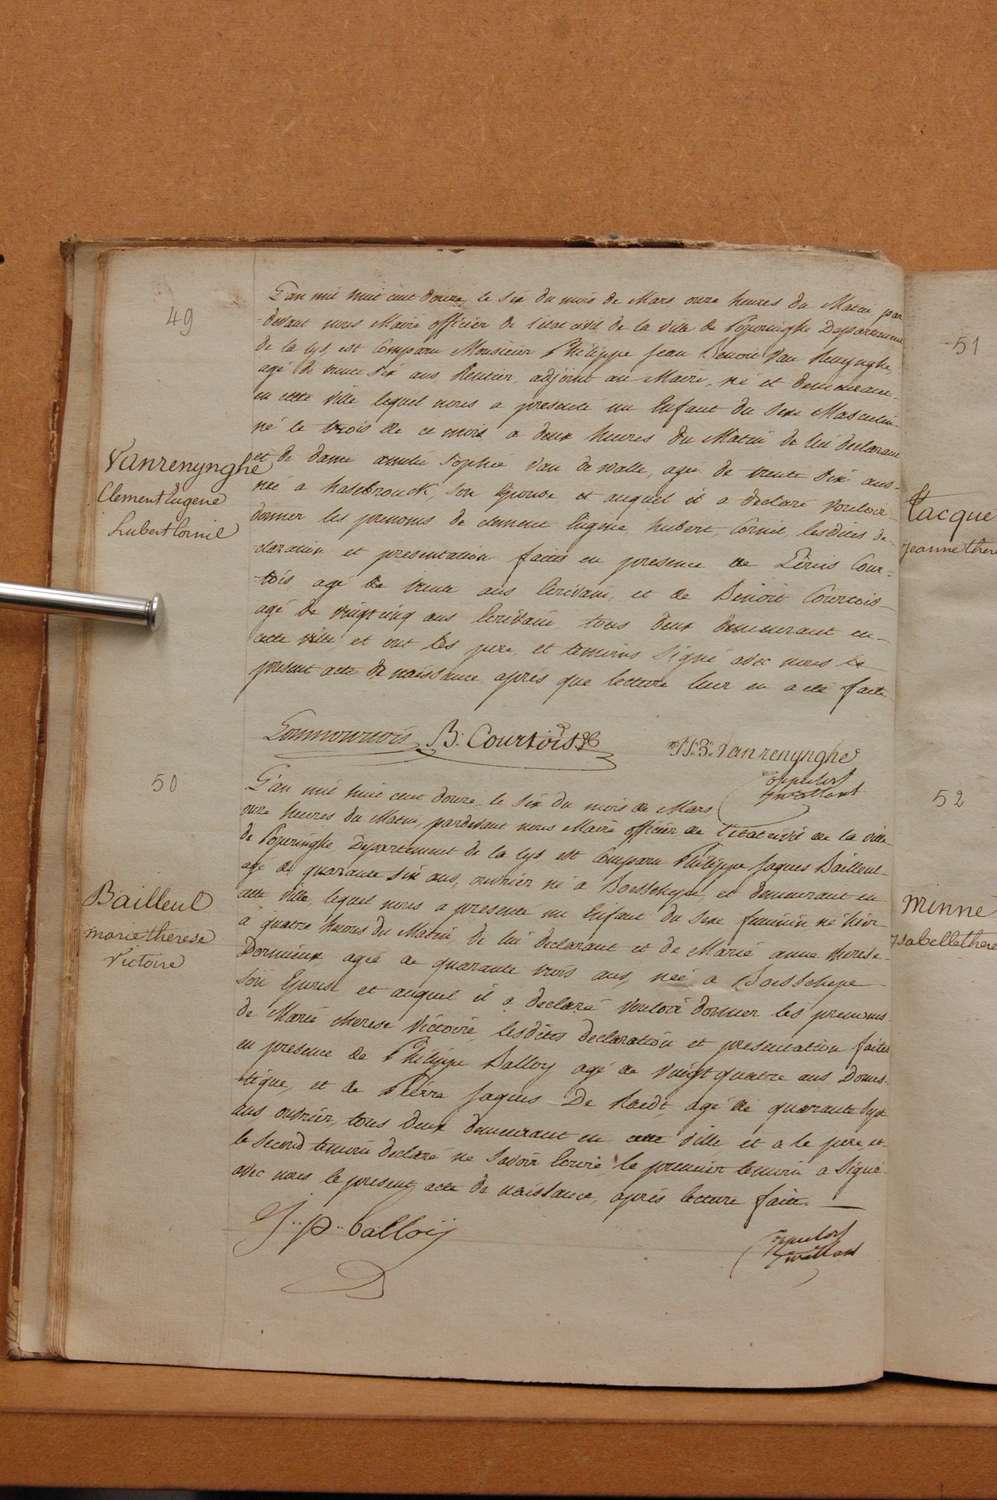 49
Vanrenynghe
Clement Eugene
hubert Cornil
L'an mil huit cent douze, le Six du mois de Mars onze heures du Matin par
devant nous Maire officier de l'etat civil de la ville de Poperinghe Departement
de la Lys, est Comparu Monsieur Philippe Jean Benoit Van Renynghe,
agé de trente Six ans Rentier, adjoint au Maire, né et demeurant
en cette ville lequel nous a presenté un Enfant du Sexe Masculin
né le trois de ce mois a deux heures du Matin de lui declarant
et de dame amelie Sophie Van de walle, agee de trente Six ans
née a hasebrouck, Son Epouse et auquel il a declaré vouloir
donner les prenoms de clement Eugene hubert, Cornil, lesdites de-
claration et presentation faites en presence de Cour-
tois agé de trente ans Ecrivain, et de Benoit Courtois
agé de vingt cinq ans Ecrivain tous deux demeurant en
cette ville et ont les pere, et temoins Signé avec nous le
present acte de naissance apres que lecture leur en a été faite
B. Courtois
P. J. B. Vanrenynghe
50
Bailleul
marie therese
Victoire
L'an mil huit cent douze le Six du mois de Mars
onze heures du Matin, pardevant nous Maire officier de l'etat civil de la ville
de Poperinghe Departement de la Lys est Comparu Philippe Jaques Bailleul
agé de quarante Six ans, ouvrier né a Boesschepe, et demeurant en
cette ville, lequel nous a presenté un Enfant du Sexe feminin né hier
a quatre heures du Matin de lui declarant et de Marie anne therese
agée de quarante trois ans, née a Boesschepe
Son Epouse et auquel il a declaré vouloir donner les prenoms
de Marie therese Victoire, lesdites declaration et presentation faites
en presence de Philippe Balloy agé de vingt quatre ans Domes-
tique, et de Pierre Jaques De Raedt agé de quarante Sept
ans ouvrier, tous deux demeurant en cette ville et a le pere, et
le Second temoin declaré ne Savoir Ecrire, le premier temoin a Signé
avec nous le present acte de naissance, après lecture faite
J. p. balloij
51
Tacque
Jeanne there
52
Minne
Isabelle there